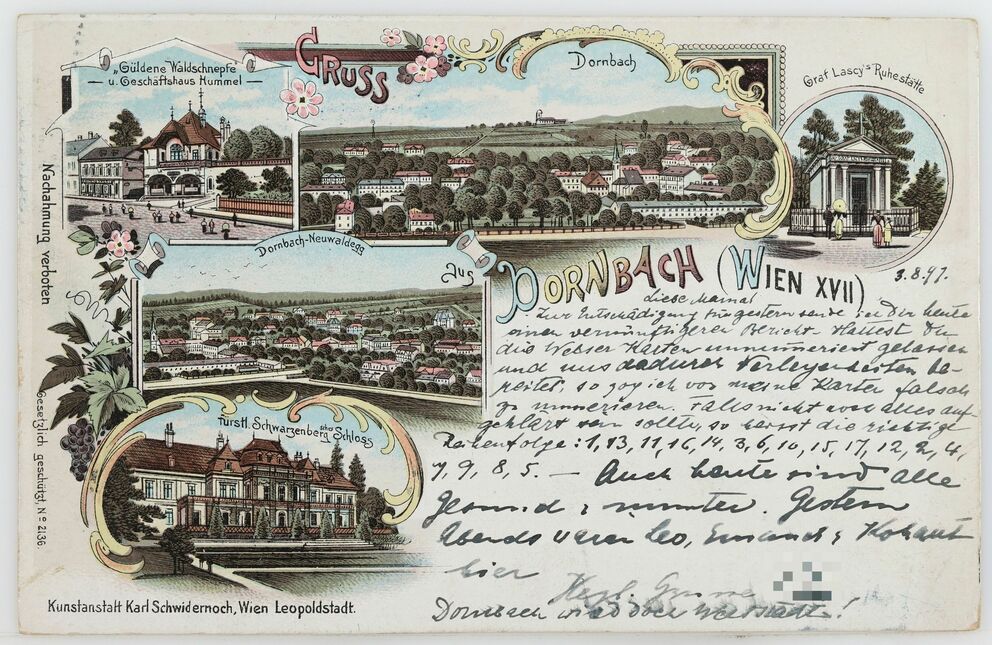 „Güldene Waldschnepfe"
u. Geschäftshaus Hummel
GRUSS
Dornbach
Graf Lascy's Ruhestätte
Dornbach-Neuwaldegg
Aus
DORNBACH (WIEN XVII)
3.8.97.
Liebe Mama!
Zur Entschädigung für gestern sende ich Dir heute
einen vernünftigeren Bericht. Hättest Du
die Weber Karten unnumeriert gelassen
und uns dadurch Verlegenheiten be-
reitet, so zog ich vor meine Karten falsch
zu numerieren. Falls nicht alles auf
geklärt sein sollte, so heisst die richtige
Reihenfolge: 1, 13, 11, 16, 14, 3, 6, 10, 15, 17, 12, 2, 4,
7, 9, 8, 5. — Auch heute sind alle
gesund & munter. Gestern
Abends waren Leo, Emanuel & Kohaut
hier
Herzl. Grüsse
Dornbach wird doch
Fürstl. Schwarzenberg'sches Schloss
Nachahmung verboten
Gesetzlich geschützt, No 2136
Kunstanstalt Karl Schwidernoch, Wien Leopoldstadt.